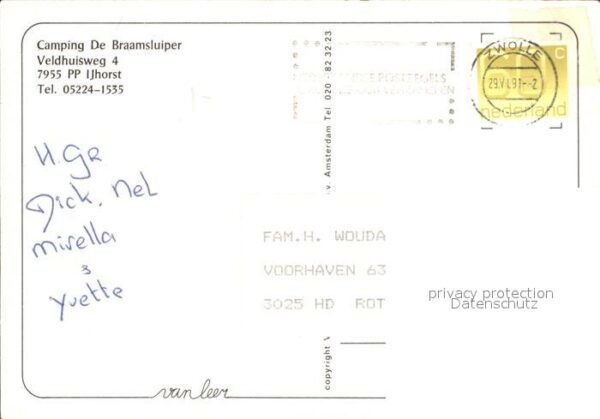 Camping De Braamsluiper
Veldhuisweg 4
7955 PP IJhorst
Tel. 05224-1535
ZWOLLE
29.VI.9
C
nederland
H. Gr
Dick, Nel
Mirella
&
Yvette
FAM.H. WOUDA
VOORHAVEN 63
3025 HD ROT
privacy protection
Datenschutz
copyright
v. Amsterdam Tel 020 82 32-23
van leer